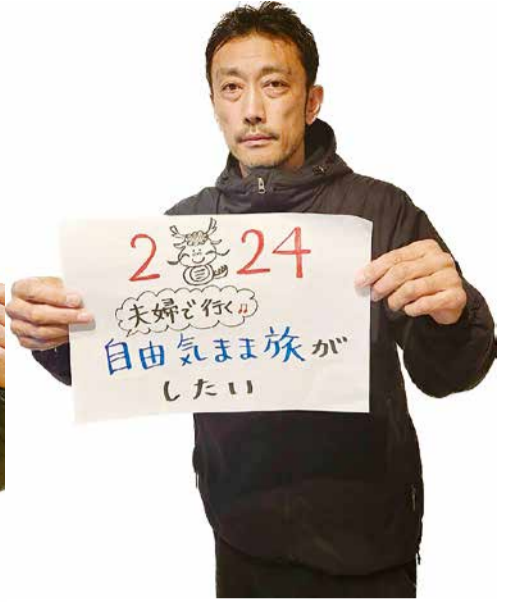 2024
夫婦で行く♫
自由気まま旅が
したい